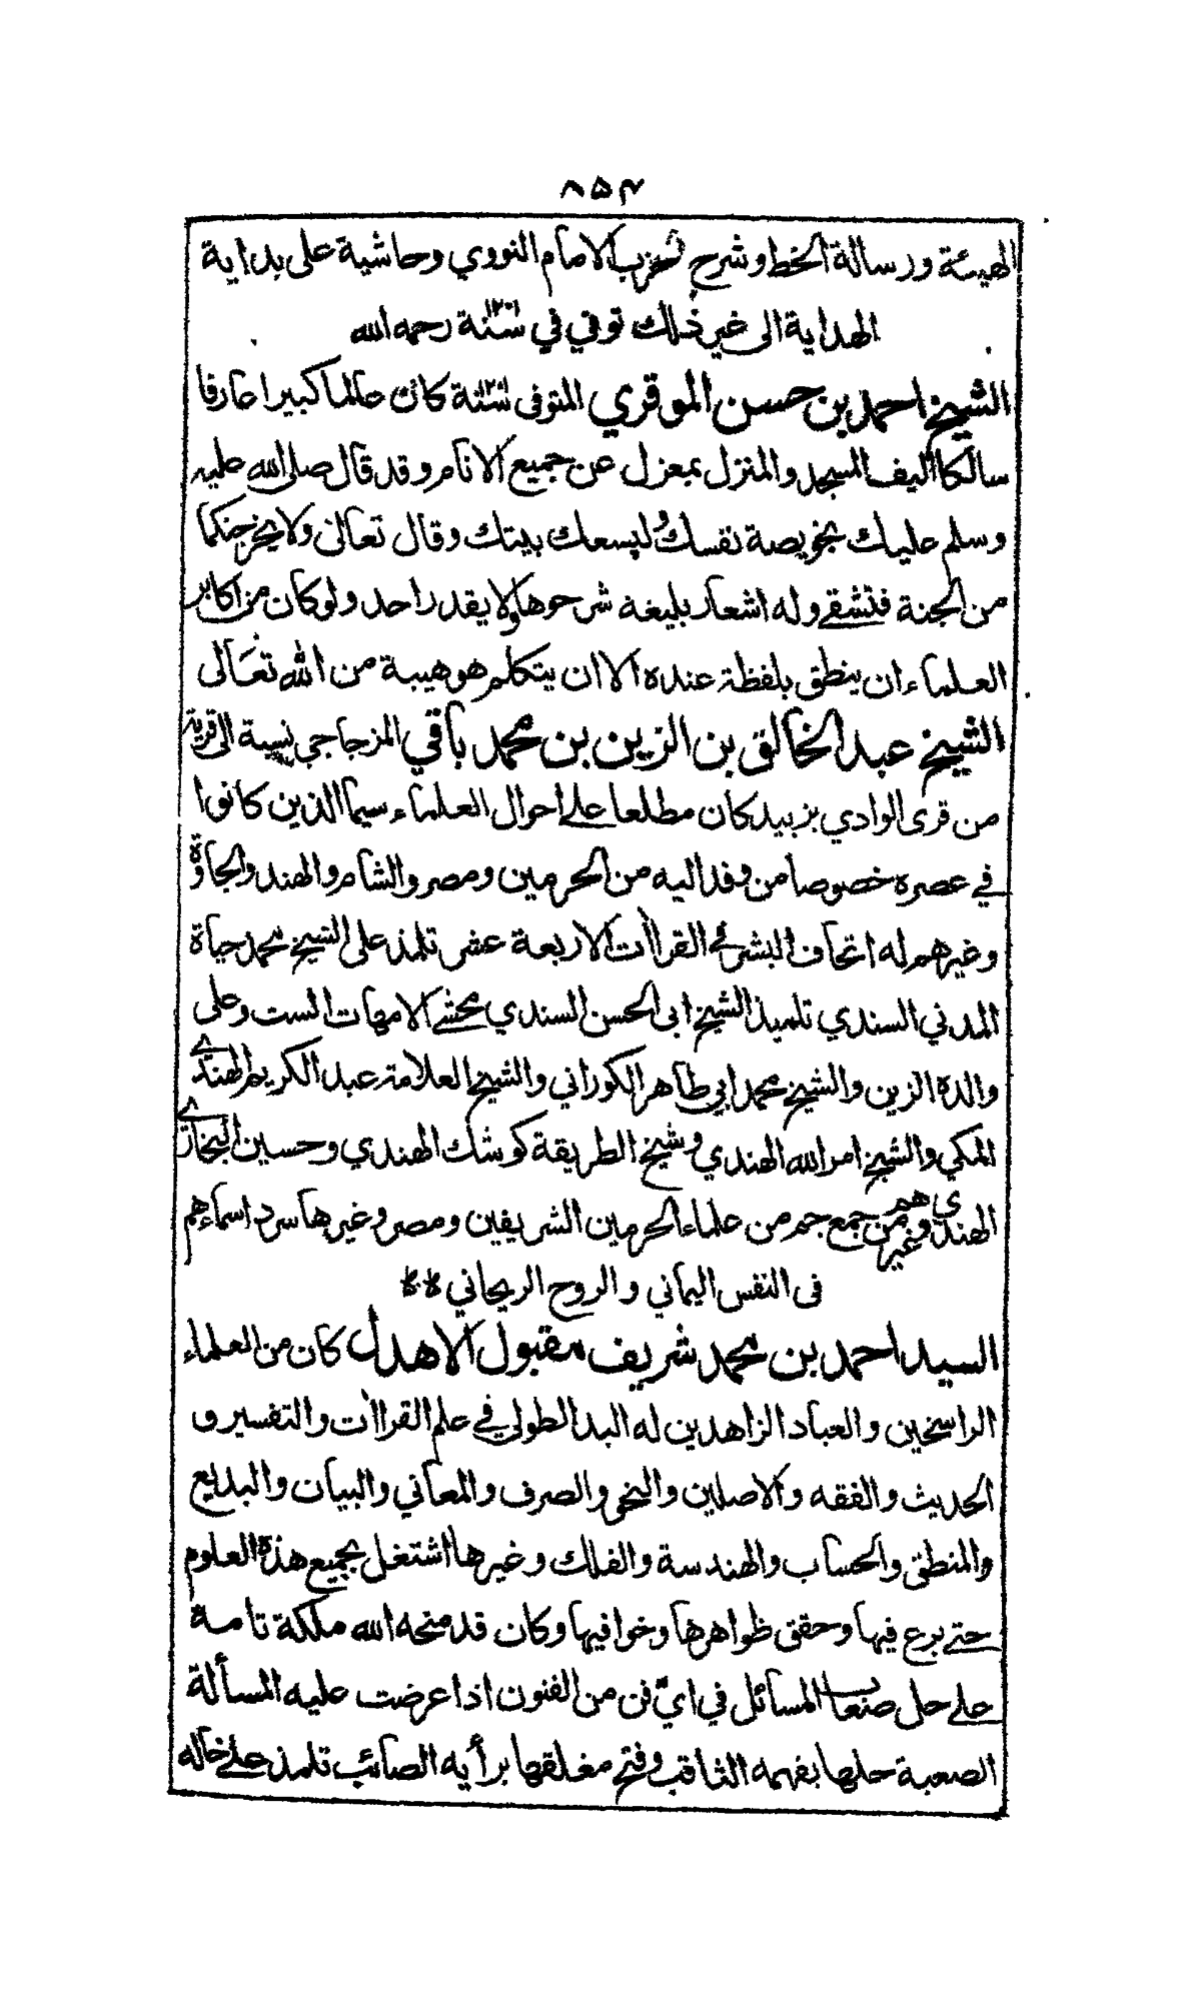 ٨٥٤
الهيئة ورسالة الخط وشرح لحزب الامام النووي وحاشية على بداية
الهداية الى غير ذلك توفي في سنة ١٢٠١ رحمه الله
الشيخ احمد بن حسن الموقري المتوفى سنة ١٢٠١ كان عالما كبيرا عارفا
سالكا أليف المسجد والمنزل بمعزل عن جميع الانام وقد قال صلى الله عليه
وسلم عليك بخويصة نفسك وليسعك بيتك وقال تعالى ولا يخرجنكما
من الجنة فتشقى وله اشعار بليغة شرحوها ولا يقدر احد ولو كان من اكابر
العلماء ان ينطق بلفظة عنده الا ان يتكلم هو هيبة من الله تعالى
الشيخ عبد الخالق بن الزين بن محمد باقي المزجاجي نسبة الى قرية
من قرى الوادي بزبيد كان مطلعا على احوال العلماء سيما الذين كانوا
في عصره خصوصا من وفد اليه من الحرمين ومصر والشام والهند والجاوة
وغيرهم له اتحاف البشر في القراآت الاربعة عشر تلمذ على الشيخ محمد حياة
المدني السندي تلميذ الشيخ ابي الحسن السندي محشي الامهات الست وعلى
والده الزين والشيخ محمد ابي طاهر الكوراني والشيخ العلامة عبد الكريم الهندي
المكي والشيخ امر الله الهندي وشيخ الطريقة كوشك الهندي وحسين البخاري
الهندي وغيرهم من جمع جم من علماء الحرمين الشريفين ومصر وغيرها سرد اسماءهم
في النفس اليماني والروح الريحاني **
السيد احمد بن محمد شريف مقبول الاهدل كان من العلماء
الراسخين والعباد الزاهدين له اليد الطولى في علم القراآت والتفسير و
الحديث والفقه والاصلين والنحو والصرف والمعاني والبيان والبديع
والمنطق والحساب والهندسة والفلك وغيرها اشتغل بجميع هذه العلوم
حتى برع فيها وحقق ظواهرها وخوافيها وكان قد منحه الله ملكة تامة
على حل صعاب المسائل في اي فن من الفنون اذا عرضت عليه المسألة
الصعبة حلها بفهمه الثاقب وفتح مغلقها برأيه الصائب تلمذ على خاله